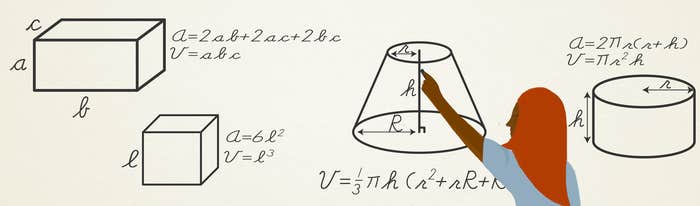 c
a
b
A=2ab+2ac+2bc
V=abc
l
A=6l²
V=l³
r
h
R
V=⅓πh(r²+rR+R
A=2πr(r+h)
V=πr²h
r
h